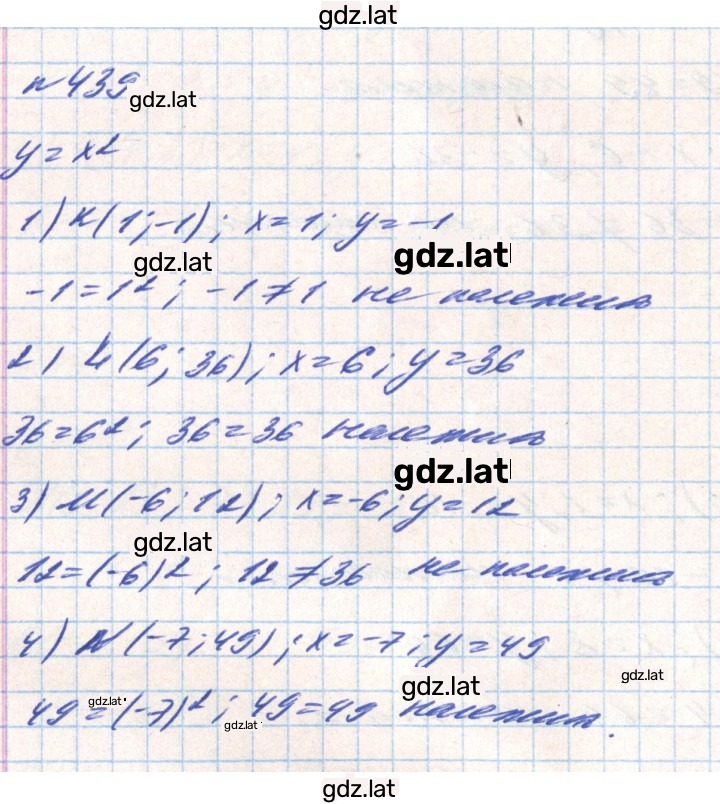 gdz.lat
n 439
gdz.lat
y = x²
1) K(1; -1); x = 1; y = -1
gdz.lat gdz.lat
-1 = 1²; -1 ≠ 1 не належить
2) L(6; 36); x = 6; y = 36
36 = 6²; 36 = 36 належить
gdz.lat
3) M(-6; 12); x = -6; y = 12
gdz.lat
12 = (-6)²; 12 ≠ 36 не належить
4) N(-7; 49); x = -7; y = 49
gdz.lat gdz.lat
49 = (-7)²; 49 = 49 належить.
gdz.lat
gdz.lat
gdz.lat